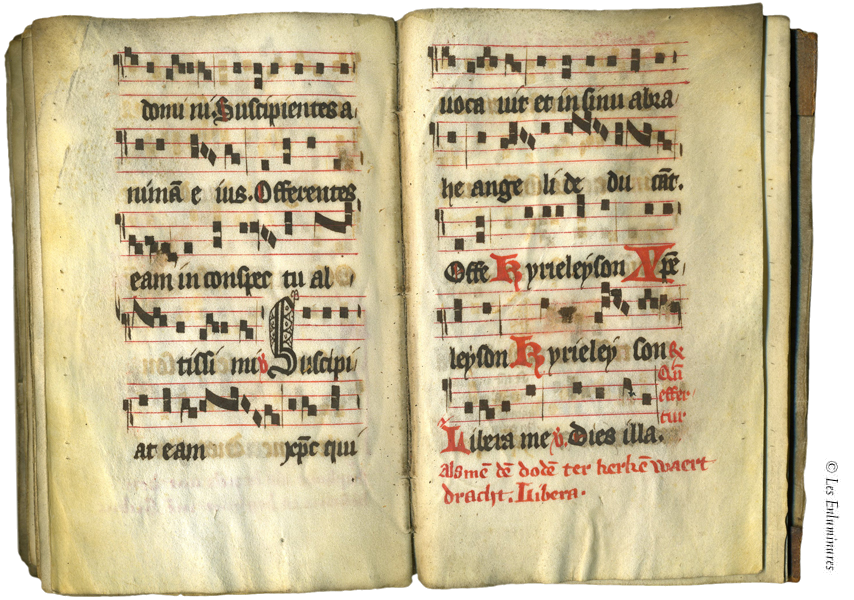 domi ni. Suscipientes a
nimā e ius. Offerentes
eam in conspec tu al
tissi mi ℣ Suscipi
at eam xp̄c qui
uoca uit et in sinu abra
he ange li de du cāt.
Offe Kyrieleyson Xpē
leyson Kyrieley son ℟
Qn̄
effer
tur
Libera me ℣. Dies illa.
alsmē dē dodē ter kerkē waert
dracht. Libera.
© Les Enluminures